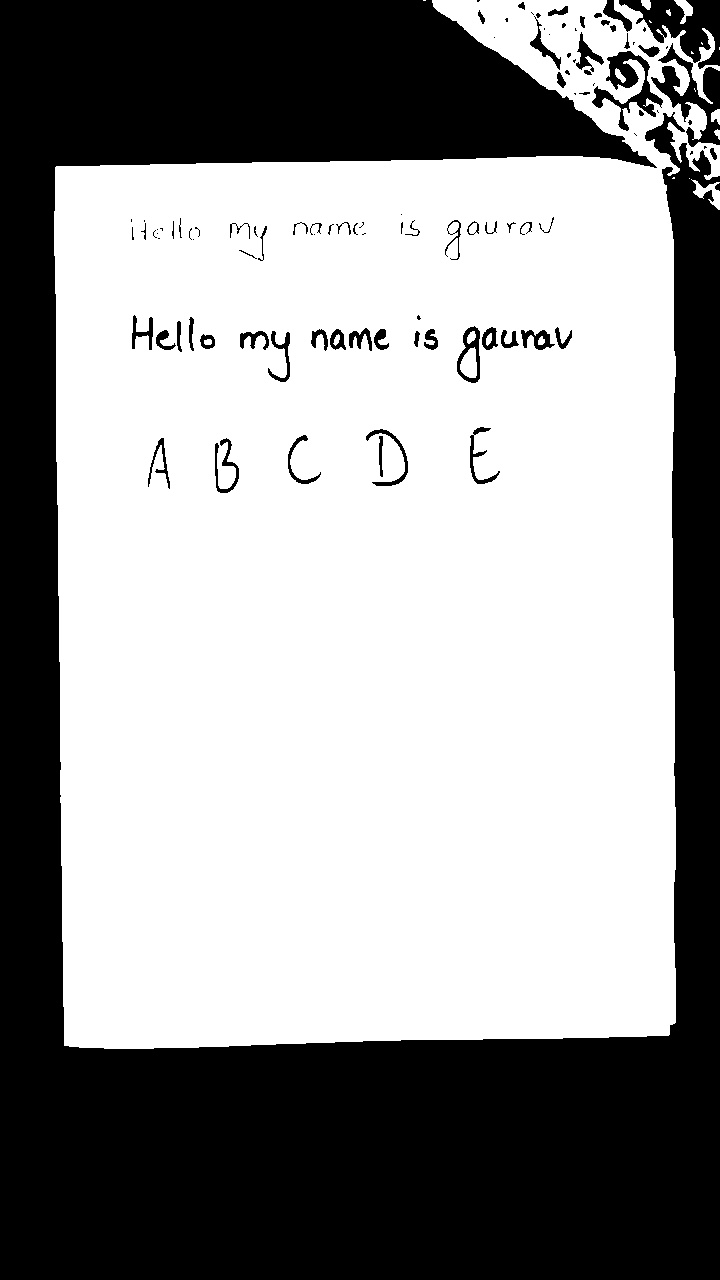 Hello my name is gaurav
Hello my name is gaurav
A B C D E